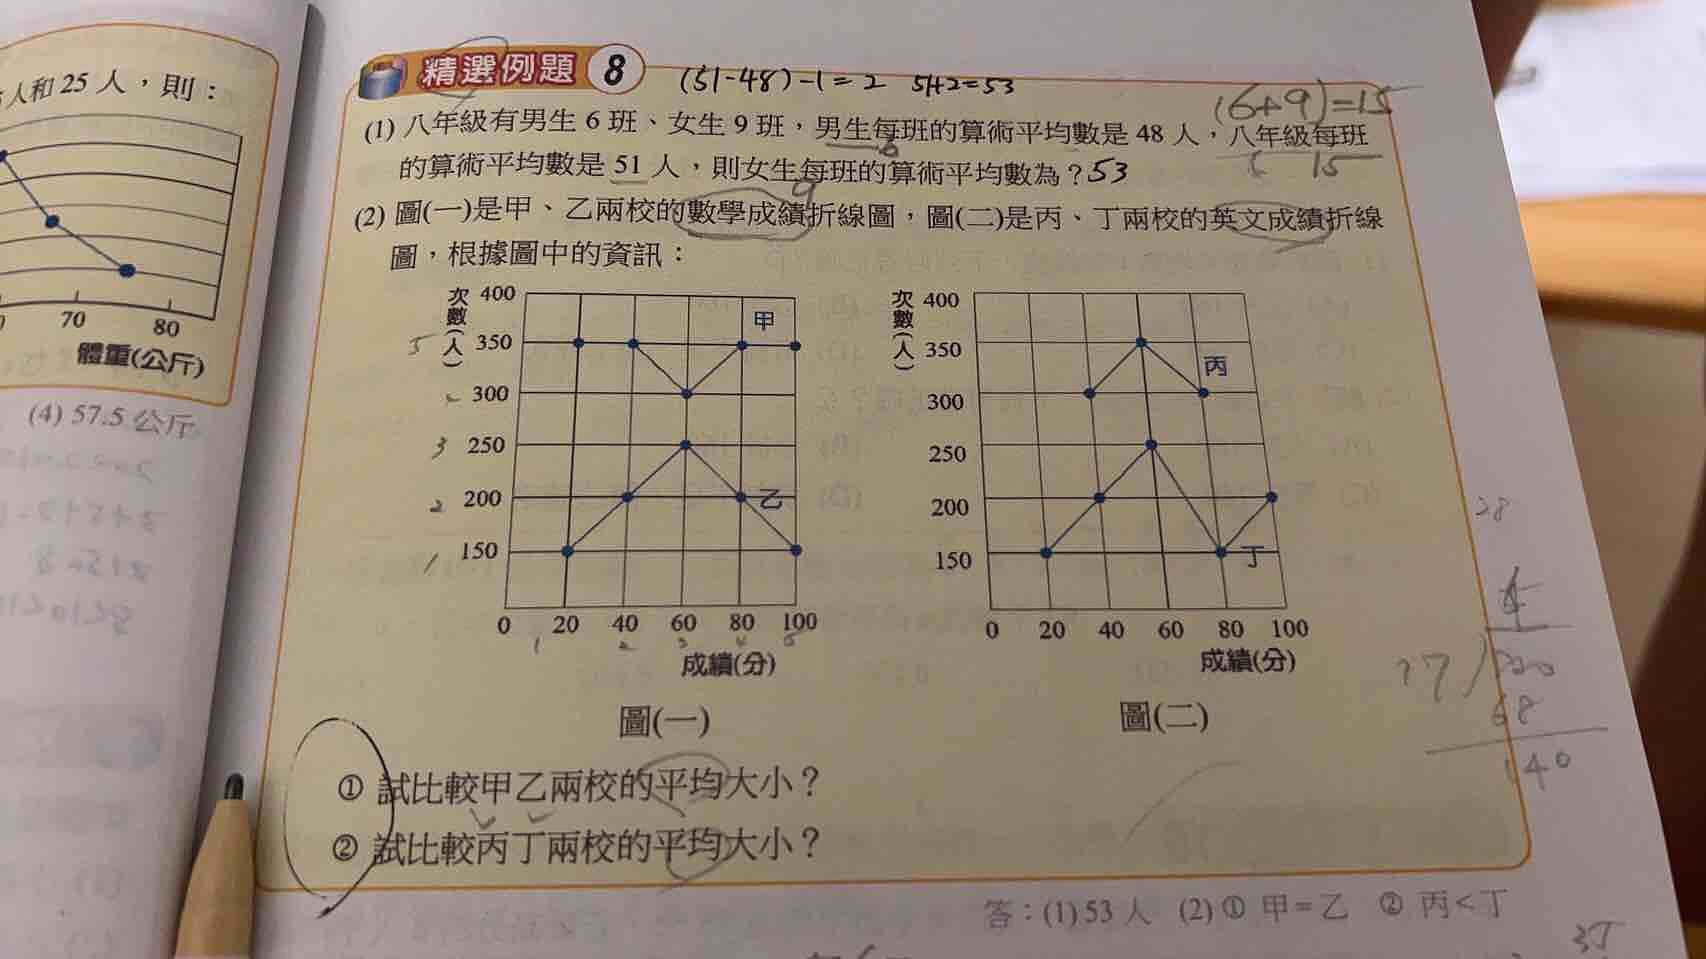 人和 25 人，則：
70 80
體重(公斤)
(4) 57.5 公斤
精選例題 8 (51-48)-1=2 51+2=53
(6+9)=15
(1) 八年級有男生 6 班、女生 9 班，男生每班的算術平均數是 48 人，八年級每班
的算術平均數是 51 人，則女生每班的算術平均數為？53
15
9
(2) 圖(一)是甲、乙兩校的數學成績折線圖，圖(二)是丙、丁兩校的英文成績折線
圖，根據圖中的資訊：
次數(人)
400
5 350
300
3 250
2 200
1 150
甲
乙
0 20 40 60 80 100
1 2 3 4 5
成績(分)
圖(一)
次數(人)
400
350
300
250
200
150
丙
丁
0 20 40 60 80 100
成績(分)
圖(二)
28
17
68
140
① 試比較甲乙兩校的平均大小？
② 試比較丙丁兩校的平均大小？
答：(1) 53 人 (2) ① 甲=乙 ② 丙<丁
35